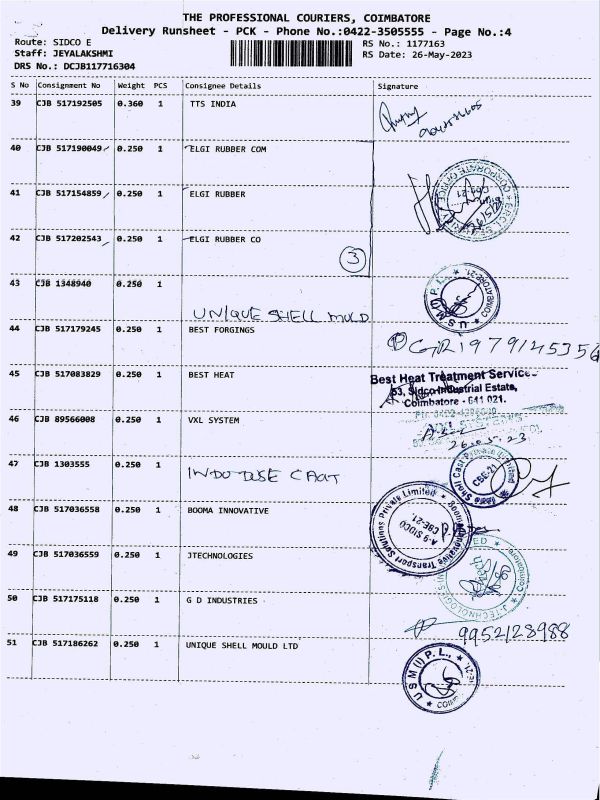 THE PROFESSIONAL COURIERS, COIMBATORE
Delivery Runsheet - PCK - Phone No.:0422-3505555 - Page No.:4
Route: SIDCO E
RS No.: 1177163
Staff: JEYALAKSHMI
RS Date: 26-May-2023
DRS No.: DCJB117716304
S No Consignment No Weight PCS Consignee Details Signature
39 CJB 517192505 0.360 1 TTS INDIA
40 CJB 517190049 0.250 1 ELGI RUBBER COM
41 CJB 517154859 0.250 1 ELGI RUBBER
42 CJB 517202543 0.250 1 ELGI RUBBER CO
3
43 CJB 1348940 0.250 1
UNIQUE SHELL MOULD
44 CJB 517179245 0.250 1 BEST FORGINGS
45 CJB 517083829 0.250 1 BEST HEAT
Best Heat Treatment Services
53, Sidco Industrial Estate,
Coimbatore - 641 021.
46 CJB 89566008 0.250 1 VXL SYSTEM
26.05.23
47 CJB 1303555 0.250 1
CBE-21
48 CJB 517036558 0.250 1 BOOMA INNOVATIVE
Booma Innovative Transport Solutions Private Limited
A-9 SIDCO
CBE-21.
49 CJB 517036559 0.250 1 JTECHNOLOGIES
50 CJB 517175118 0.250 1 G D INDUSTRIES
9952128988
51 CJB 517186262 0.250 1 UNIQUE SHELL MOULD LTD
U S M (I) P. L.,